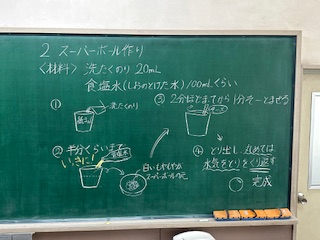 2 スーパーボール作り
〈材料〉 洗たくのり 20mL
食塩水(しおのとけた水) 100mLくらい
①
洗たくのり
紙コップ
② 半分くらいまで
いっきに!
食塩水
白いもやもやが
スーパーボールの元
③ 2分ほどまってから1分そーとまぜる
④ とり出し、丸めては
水気をとりをくり返す
完成